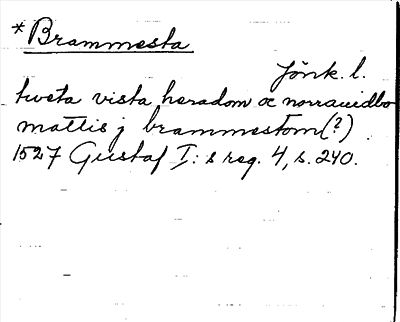 *Brammesta
Jönk. l.
tveta vista heradom oc norrauidbo
mattis j brammestom (?)
1527 Gustaf I:s reg. 4, s. 240.